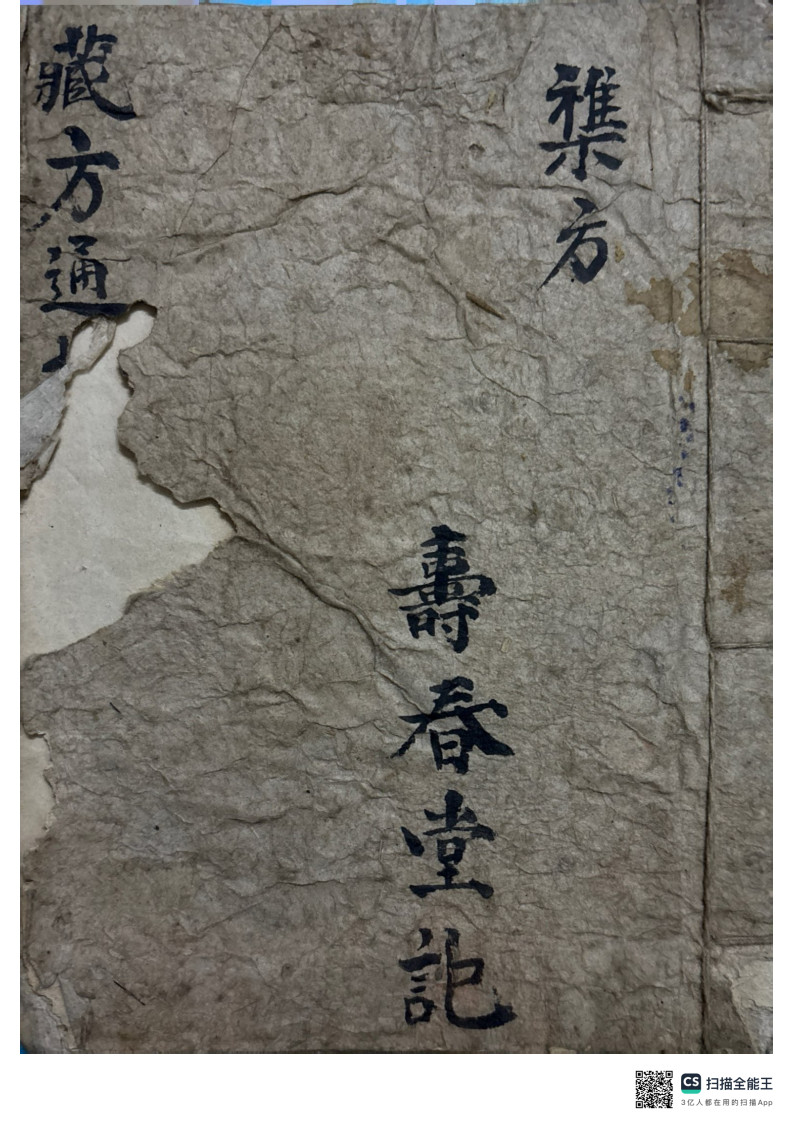 襍方
壽春堂記
藏方通
CS 扫描全能王
3亿人都在用的扫描App